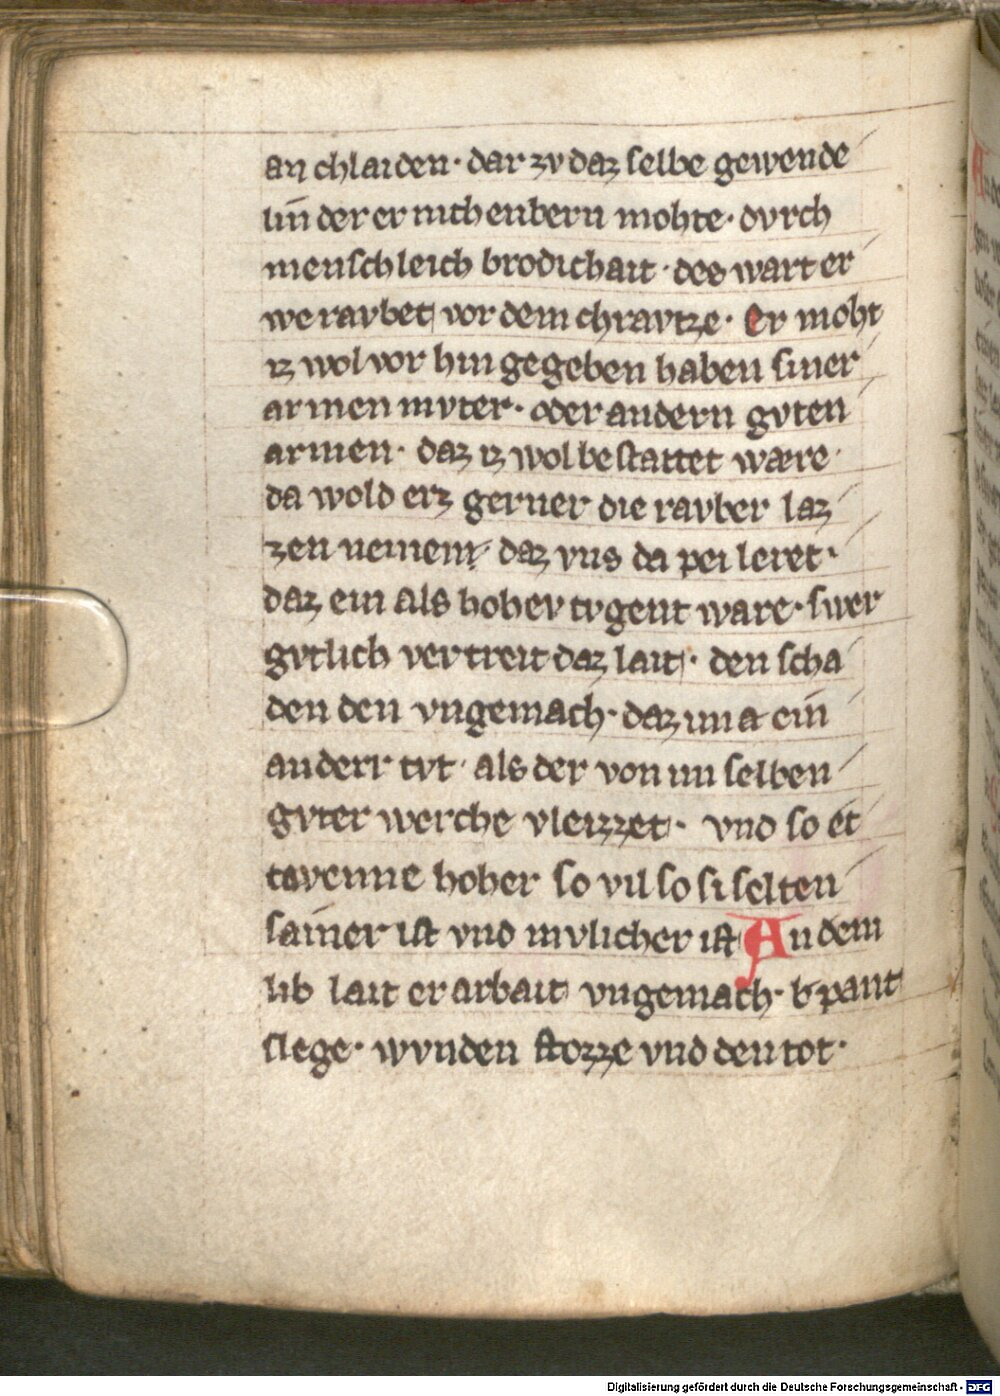 an chlaiden· dar zv daz selbe gewende
lin̄ der er nich enbern mohte· dvrch
menschleich brodichait· des wart er
we ravbet vor dem chravtze· Er moht
iz wol vor hin gegeben haben siner
armen mvter· oder andern gvten
armen· daz iz wol bestattet wære·
da wold erz gerner die ravber laz
zen nemem· daz vns da pei leret·
daz ein als hohev tvgent ware· swer
gvtlich vertreit daz lait· den scha
den den vngemach· daz im a ein̄
anderr tvt· als der von im selben
gvter werche vleizzet· vnd so et
tavenne hoher so vil so si selten
sam̄er ist vnd mvlicher ist An dem
lib lait er arbait vngemach· pant
slege· wvnden stozze vnd den tot·
Digitalisierung gefördert durch die Deutsche Forschungsgemeinschaft - DFG